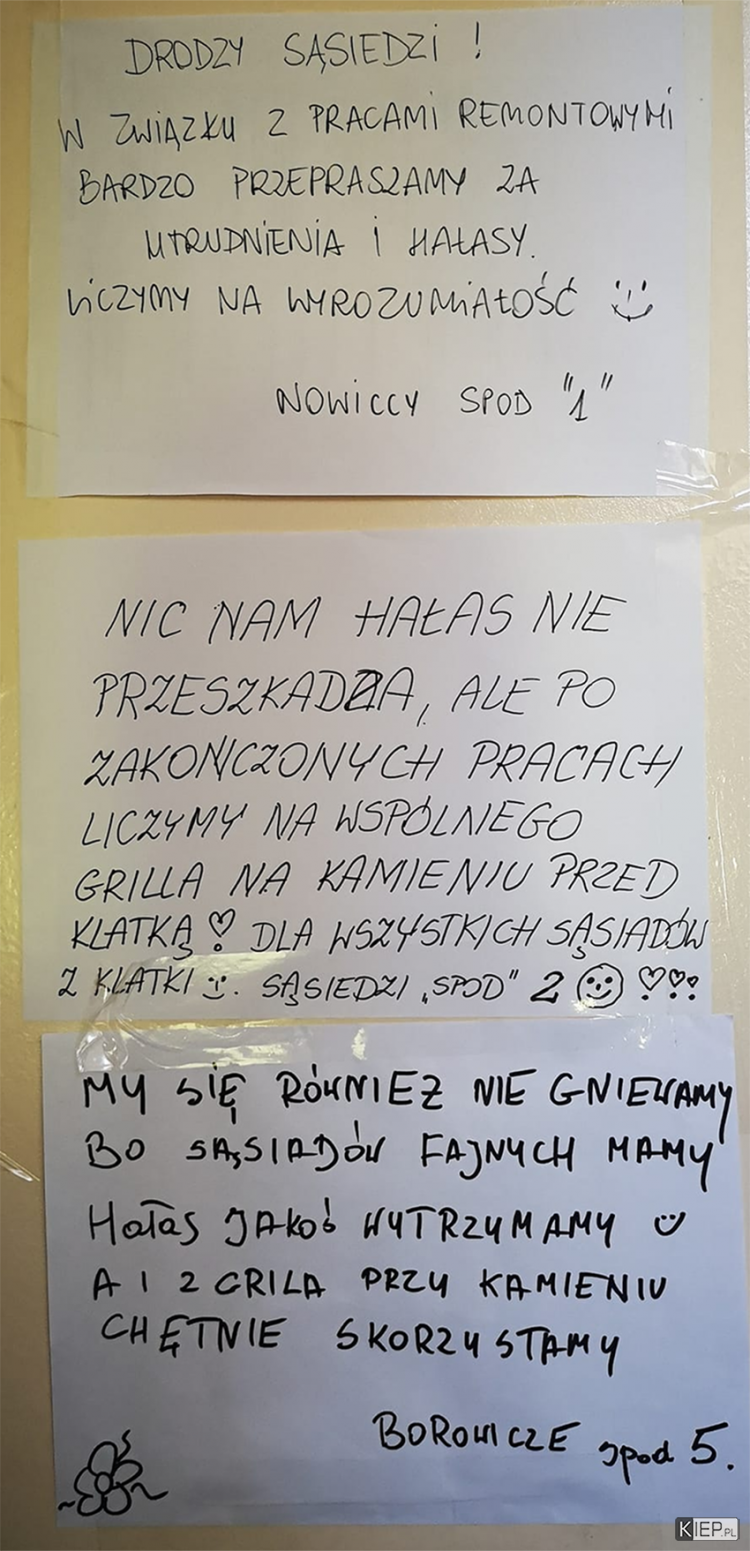 DRODZY SĄSIEDZI !
W ZWIĄZKU Z PRACAMI REMONTOWYMI
BARDZO PRZEPRASZAMY ZA
UTRUDNIENIA I HAŁASY.
LICZYMY NA WYROZUMIAŁOŚĆ
NOWICCY SPOD "1"
NIC NAM HAŁAS NIE
PRZESZKADZA, ALE PO
ZAKOŃCZONYCH PRACACH
LICZYMY NA WSPÓLNEGO
GRILLA NA KAMIENIU PRZED
KLATKĄ DLA WSZYSTKICH SĄSIADÓW
Z KLATKI :). SĄSIEDZI „SPOD" 2
MY SIĘ RÓWNIEŻ NIE GNIEWAMY
BO SĄSIADÓW FAJNYCH MAMY
HAŁAS JAKOŚ WYTRZYMAMY
A I Z GRILA PRZY KAMIENIU
CHĘTNIE SKORZYSTAMY
BOROWICZE spod 5.
KIEP.PL